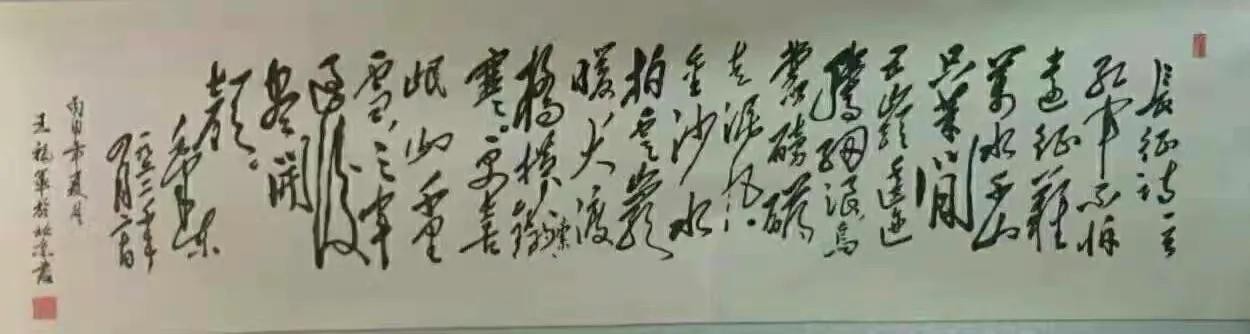 长征诗一首
红军不怕
远征难
万水千山
只等闲
五岭逶迤
腾细浪乌
蒙磅礴
走泥丸
金沙水
拍云崖
暖大渡
桥横铁索
寒更喜
岷山千里
雪三军
过后
尽开
颜。
毛泽东
一九六二年
四月廿日
丙申年夏月
福军於北京书